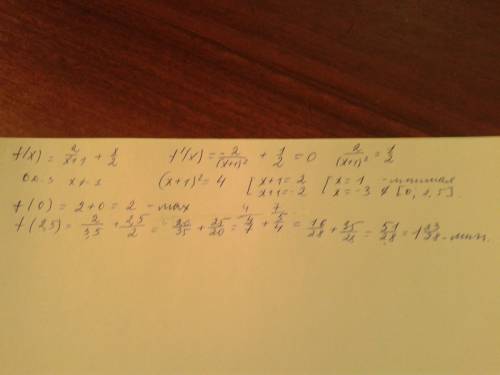 f(x) = 2/(x+1) + x/2    f'(x) = -2/(x+1)² + 1/2 = 0    2/(x+1)² = 1/2
x ≠ -1    (x+1)² = 4    [ x+1 = 2    [ x = 1
x+1 = -2    x = -3 ∉ [0; 2,5].
f(0) = 2+0 = 2 - max
f(2,5) = 2/3,5 + 2,5/2 = 20/35 + 25/20 = 4/7 + 5/4 = 16/28 + 35/28 = 51/28 = 1 23/28 - мин.